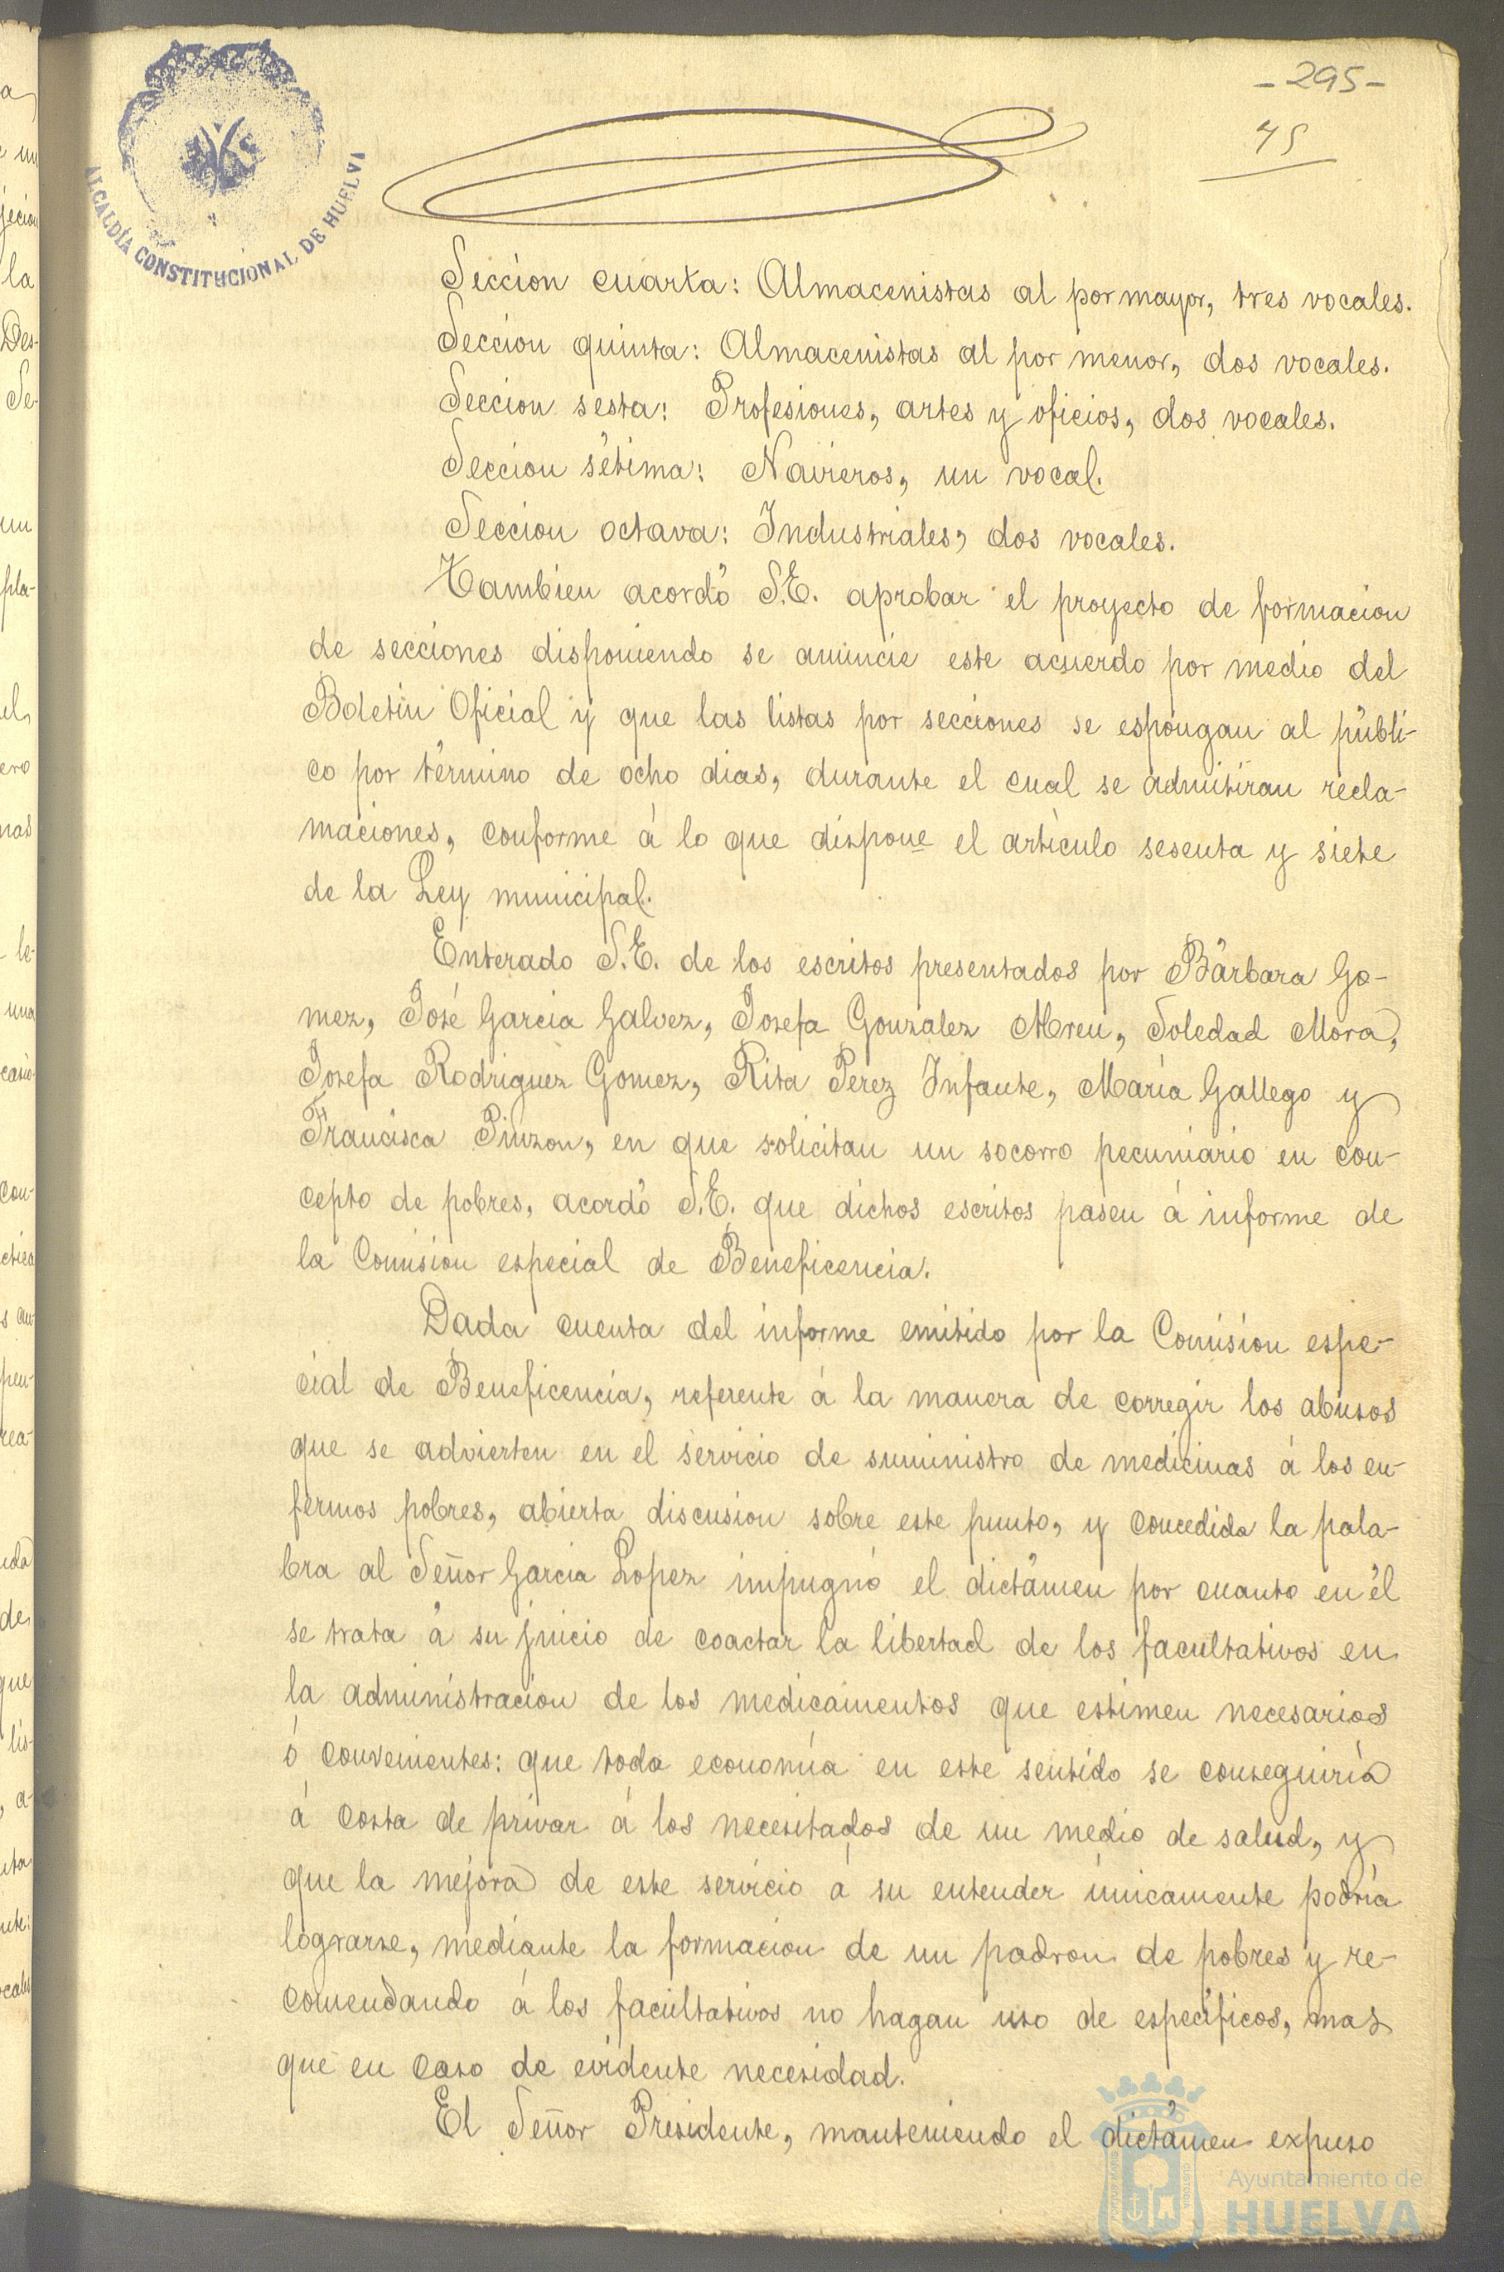 - 295 -
45
ALCALDÍA CONSTITUCIONAL DE HUELVA
Seccion cuarta: Almacenistas al por mayor, tres vocales.
Seccion quinta: Almacenistas al por menor, dos vocales.
Seccion sesta: Profesiones, artes y oficios, dos vocales.
Seccion sétima: Navieros, un vocal.
Seccion octava: Industriales, dos vocales.
Tambien acordó S.E. aprobar el proyecto de formacion
de secciones disponiendo se anuncie este acuerdo por medio del
Boletin Oficial y que las listas por secciones se espongan al públi-
co por término de ocho dias, durante el cual se admitiran recla-
maciones, conforme á lo que dispone el artículo sesenta y siete
de la Ley municipal.
Enterado S.E. de los escritos presentados por Bárbara Go-
mez, José Garcia Galvez, Josefa Gonzalez Abreu, Soledad Mora,
Josefa Rodriguez Gomez, Rita Perez Infante, María Gallego y
Francisca Pinzon, en que solicitan un socorro pecuniario en con-
cepto de pobres, acordó S.E. que dichos escritos pasen á informe de
la Comision especial de Beneficencia.
Dada cuenta del informe emitido por la Comision espe-
cial de Beneficencia, referente á la manera de corregir los abusos
que se advierten en el servicio de suministro de medicinas á los en-
fermos pobres, abierta discusion sobre este punto, y concedida la pala-
bra al Señor Garcia Lopez impugnó el dictámen por cuanto en él
se trata á su juicio de coactar la libertad de los facultativos en
la administracion de los medicamentos que estimen necesarios
ó convenientes: que toda economía en este sentido se conseguiría
á costa de privar á los necesitados de un medio de salud, y
que la mejora de este servicio á su entender únicamente podría
lograrse, mediante la formacion de un padron de pobres y re-
comendando á los facultativos no hagan uso de específicos, mas
que en caso de evidente necesidad.
El Señor Presidente, manteniendo el dictámen expuso
Ayuntamiento de
HUELVA